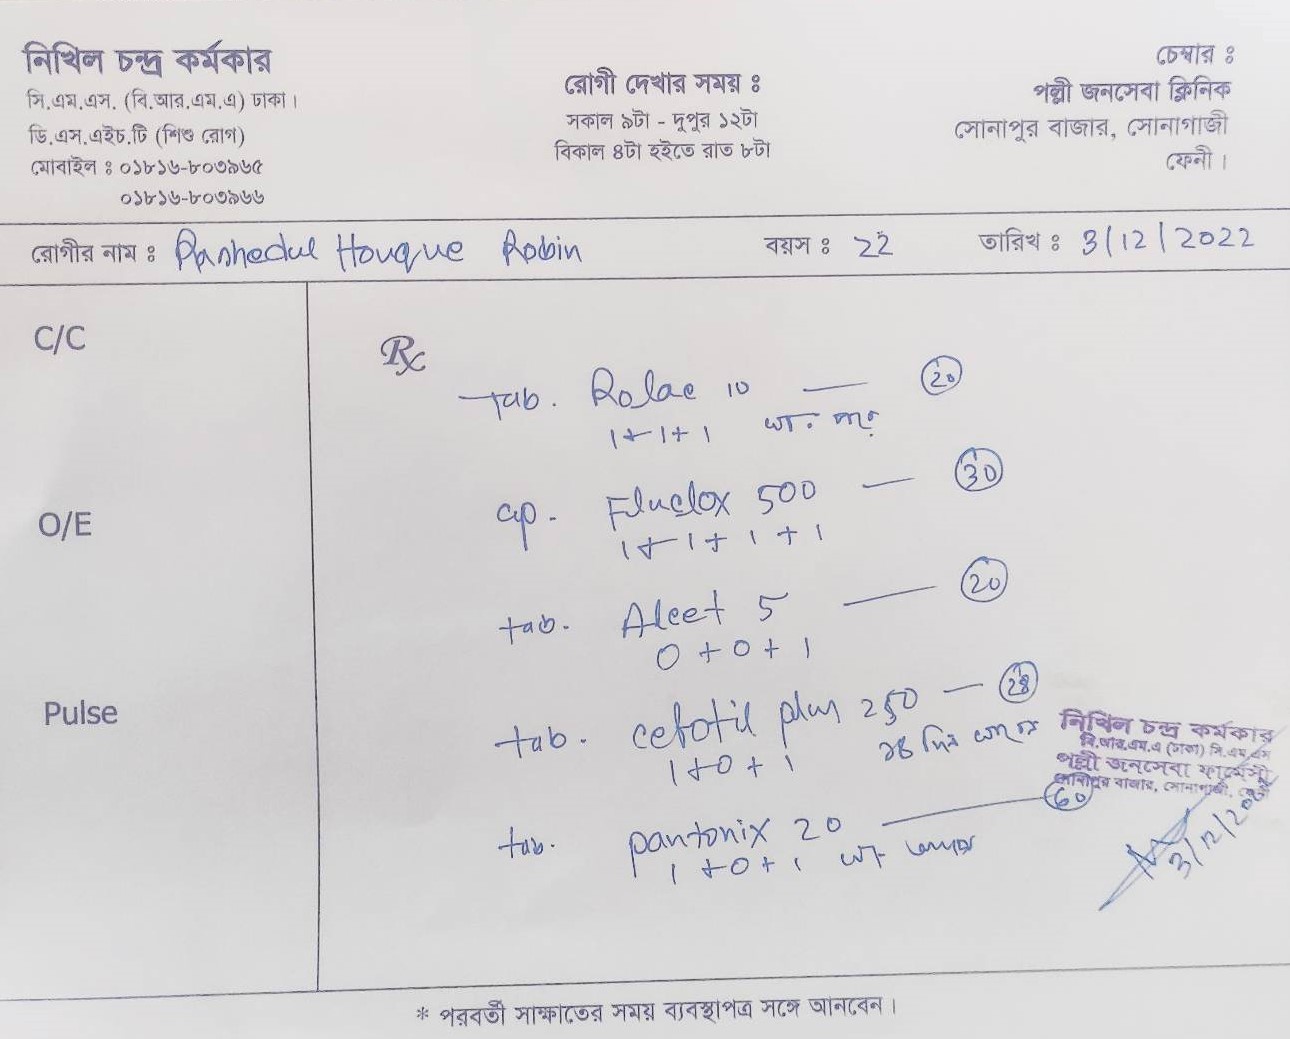 নিখিল চন্দ্র কর্মকার
সি.এম.এস. (বি.আর.এম.এ) ঢাকা।
ডি.এস.এইচ.টি (শিশু রোগ)
মোবাইল ঃ ০১৮১৬-৮০৩৯৬৫
০১৮১৬-৮০৩৯৬৬
রোগী দেখার সময় ঃ
সকাল ৯টা - দুপুর ১২টা
বিকাল ৪টা হইতে রাত ৮টা
চেম্বার ঃ
পল্লী জনসেবা ক্লিনিক
সোনাপুর বাজার, সোনাগাজী
ফেনী।
রোগীর নাম ঃ Rashedul Houque Robin বয়স ঃ 22 তারিখ ঃ 3/12/2022
C/C
O/E
Pulse
Rx
Tab. Rolac 10 — 20
1+1+1
cap. Fluclox 500 — 30
1+1+1+1
tab. Alcet 5 — 20
0+0+1
tab. cefotil plus 250 — 28
1+0+1 ১৪ দিন
tab. pantonix 20 — 60
1+0+1
নিখিল চন্দ্র কর্মকার
বি.আর.এম.এ (ঢাকা) সি.এম.এস
পল্লী জনসেবা ফার্মেসী
সোনাপুর বাজার, সোনাগাজী, ফেনী
3/12/20
* পরবর্তী সাক্ষাতের সময় ব্যবস্থাপত্র সঙ্গে আনবেন।